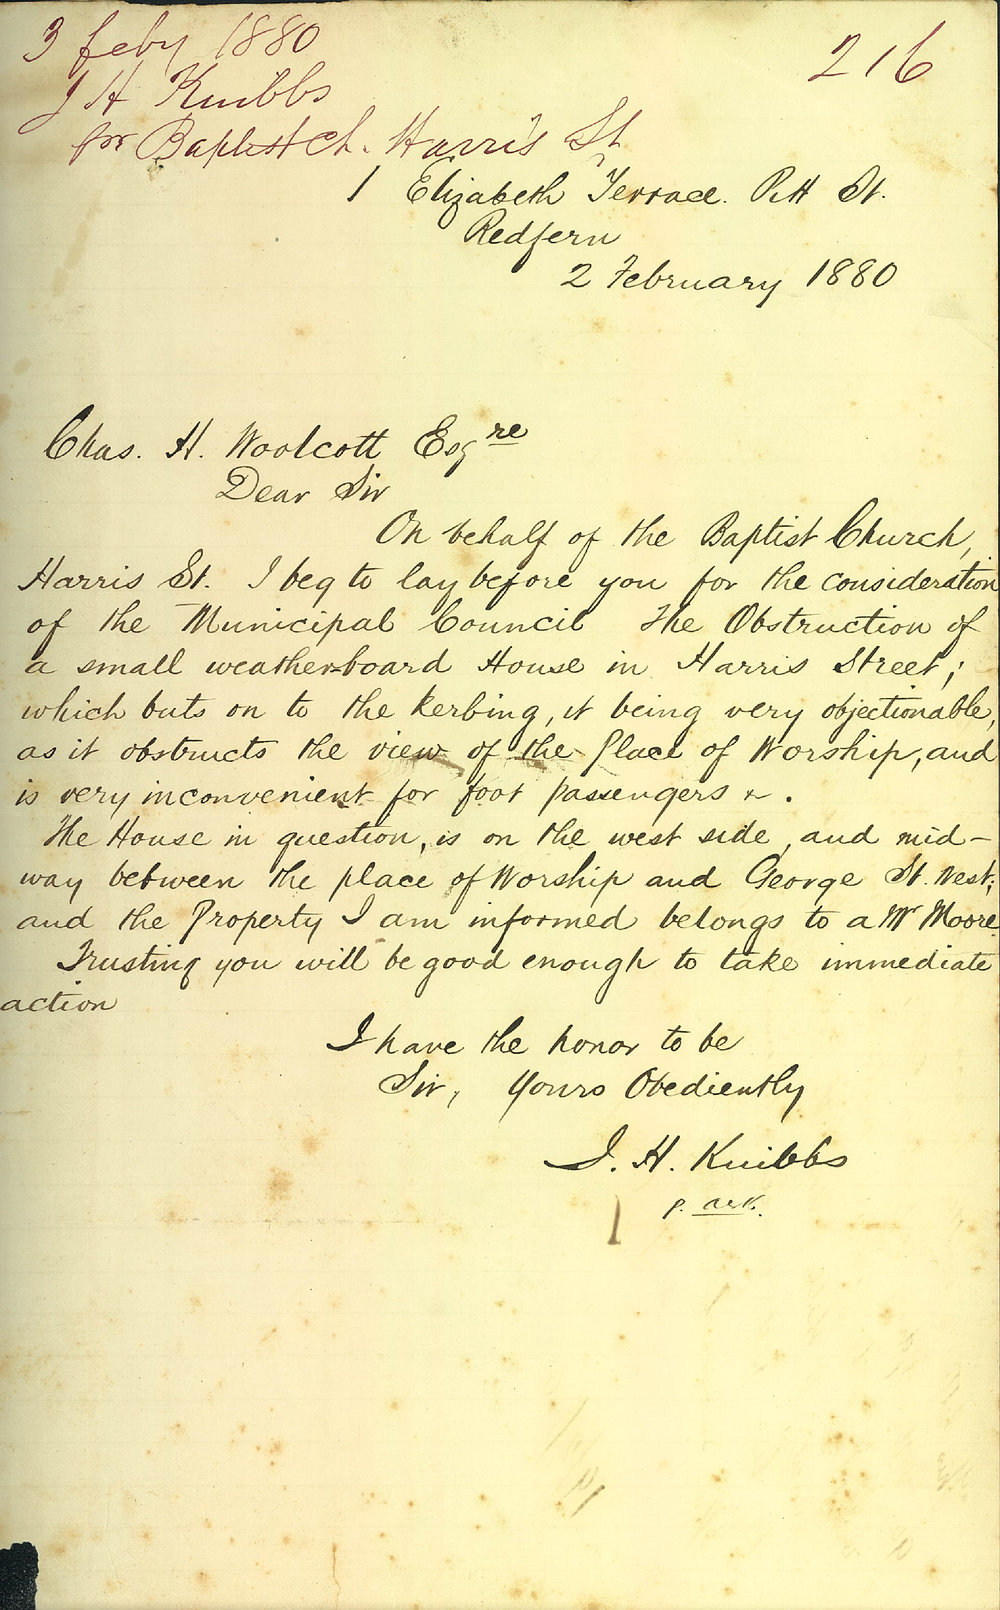 3 feby 1880
216
J H Knibbs
for Baptist Ch. Harris St
1 Elizabeth Terrace. Pitt St.
Redfern
2 February 1880
Chas. H. Woolcott Esqre
Dear Sir
On behalf of the Baptist Church,
Harris St. I beg to lay before you for the consideration
of the Municipal Council The Obstruction of
a small weather-board House in Harris Street;
which buts on to the kerbing, it being very objectionable,
as it obstructs the view of the Place of Worship, and
is very inconvenient for foot passengers &.
The House in question, is on the west side, and mid-
way between the place of Worship and George St. West;
and the Property I am informed belongs to a Mr Moore.
Trusting you will be good enough to take immediate
action
I have the honor to be
Sir, Yours Obediently
J. H. Knibbs
p.